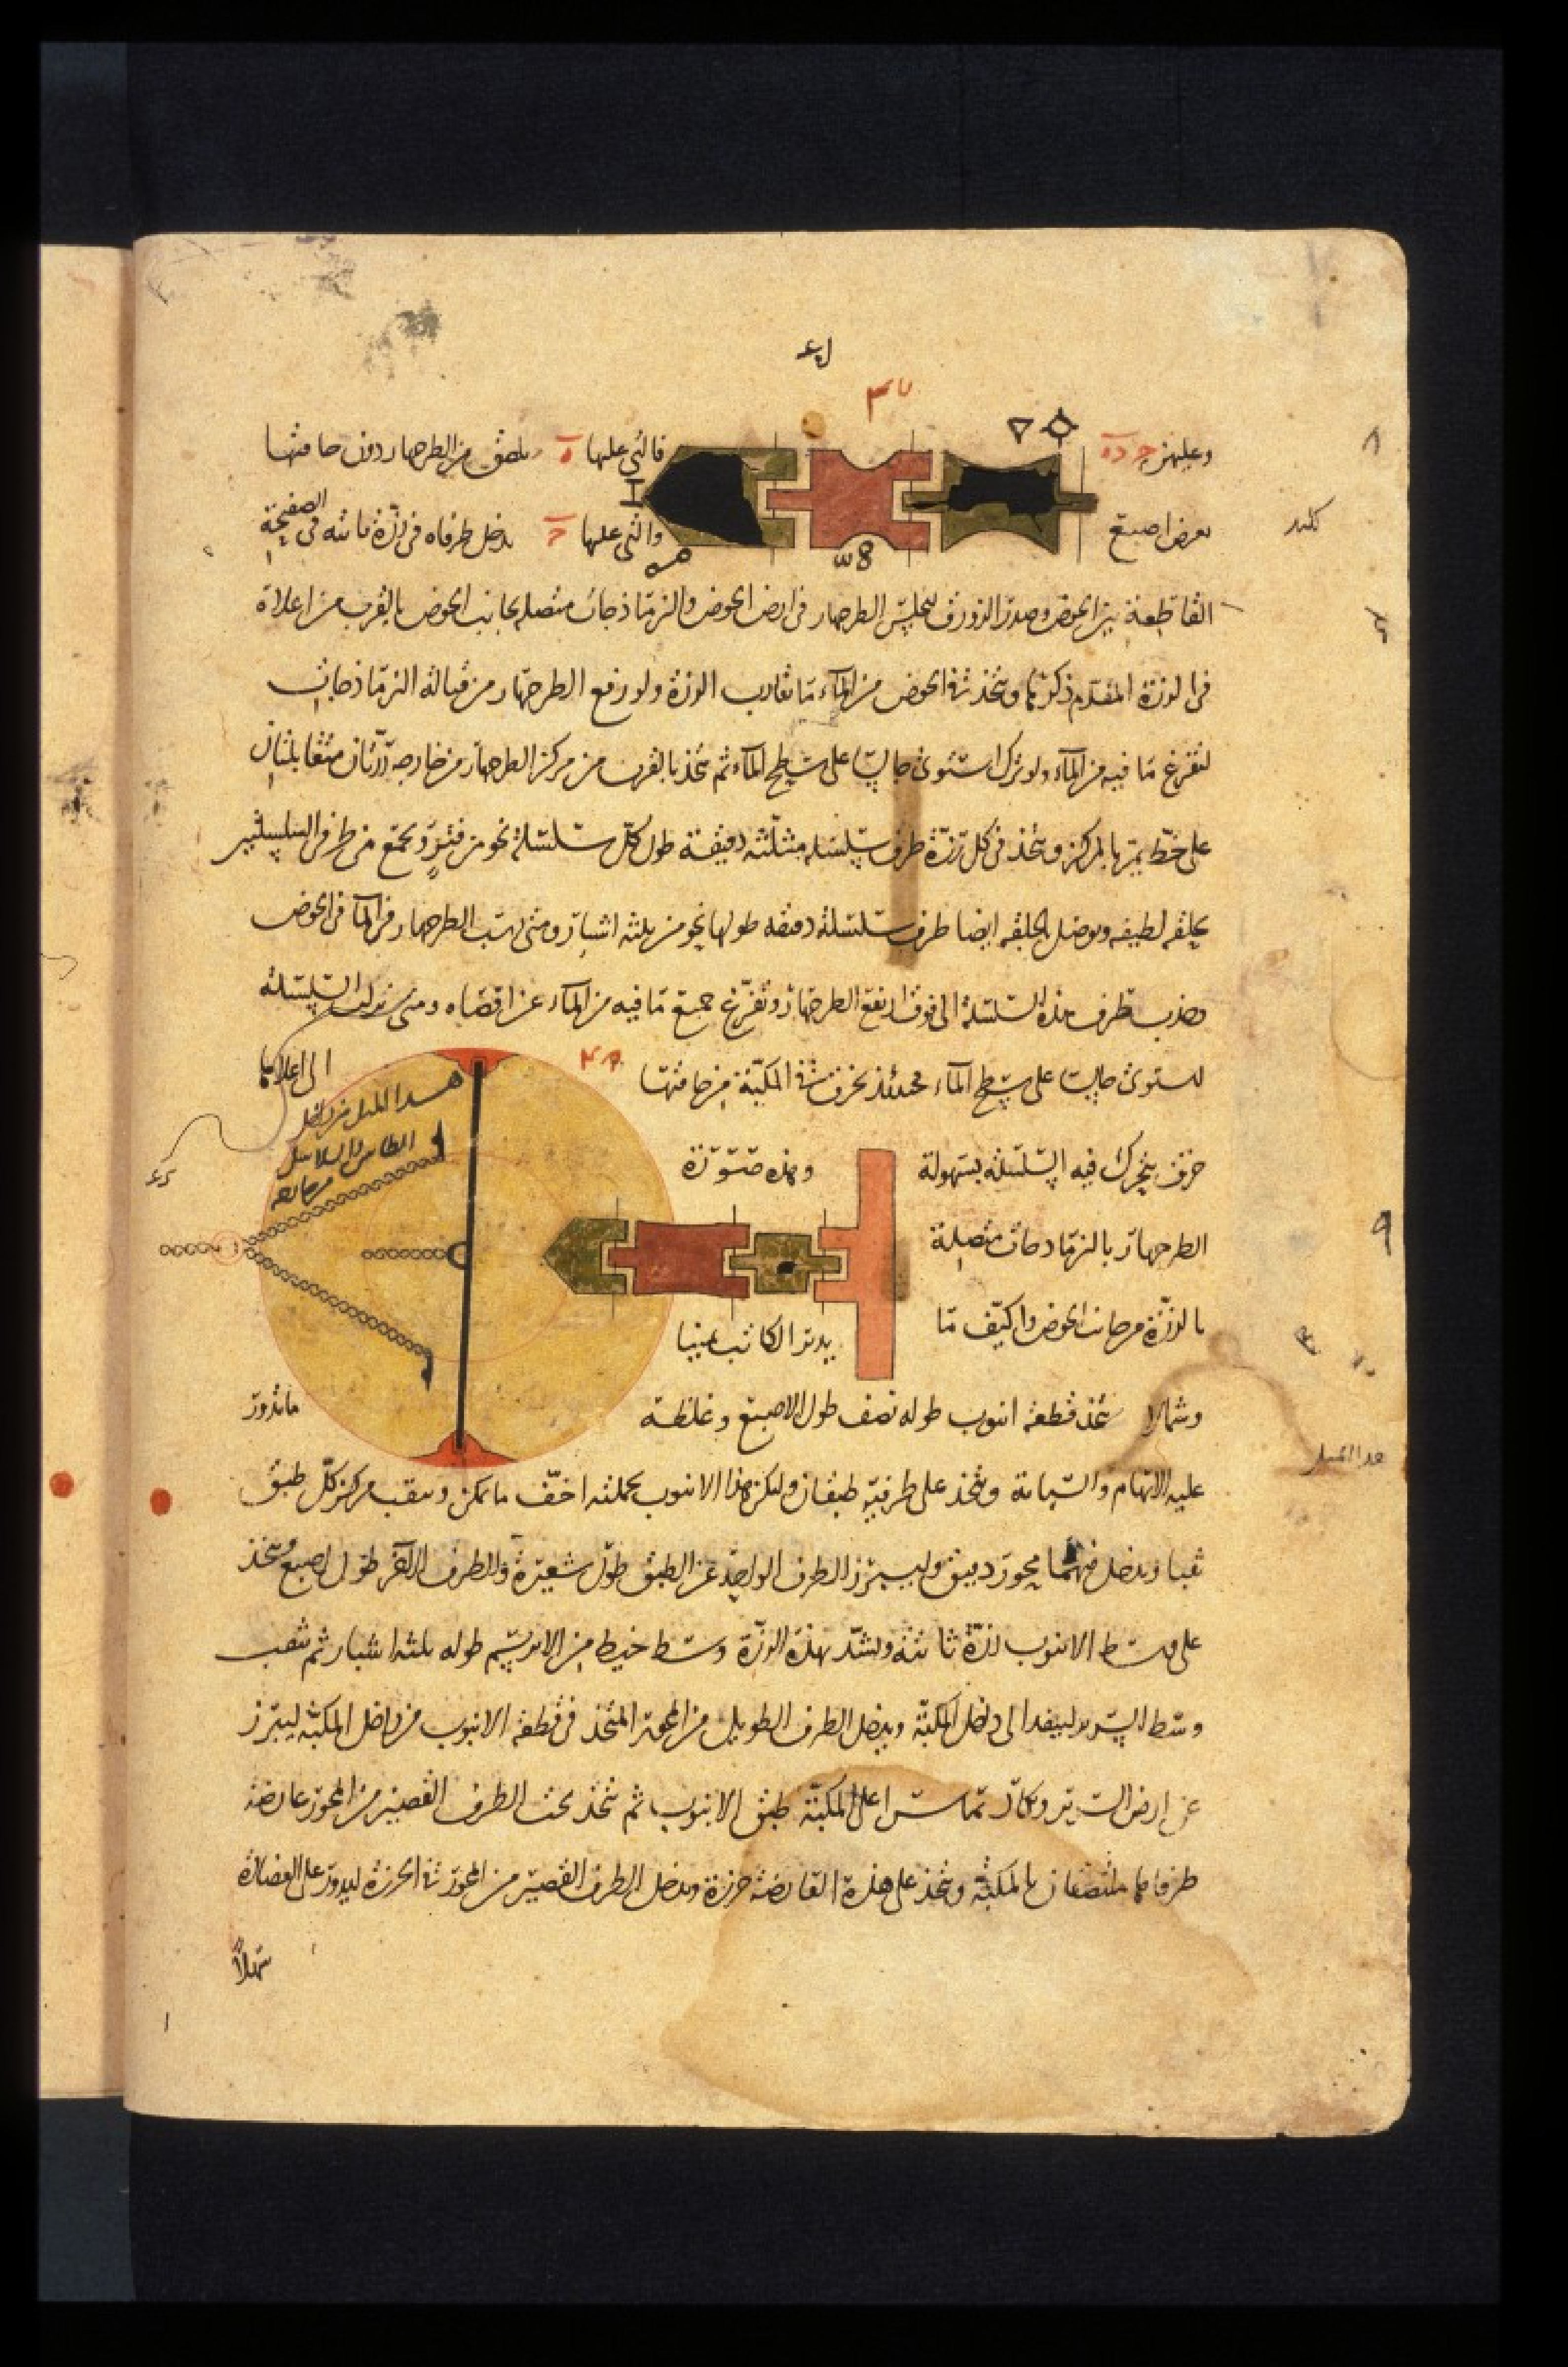 وعليهن فالتي عليها يلصق من الطرجهار دون حافتها
بعرض اصبع والتي عليها يدخل طرفاه في لزة ثابتة في الصفيحة
القاطعة بين الحوض وصدر الزورق ليجلس الطرجهار في ارض الحوض والنرماذجات متصلة بجانب الحوض بالقرب من اعلاه
في الرزة المقدم ذكرها ويتخذ في الحوض من المآء ما يقارب الرزة ولو رفع الطرجهار من قبالة النرماذجات
لتفرغ ما فيه من المآء ولو ترك استوى جالسا على سطح المآء ثم يتخذ بالقرب من مركز الطرجهار من خارجه رزتان متقابلتان
على خط يمر بالمركز ويتخذ في كل رزة طرف سلسلة مثلثة دقيقة طول كل سلسلة نحو من فتر ويجمع من طرفي السلسلتين
بحلقة لطيفة ويوصل بالحلقة ايضا طرف سلسلة دقيقة طولها نحو من ثلثة اشبار ومتى رسب الطرجهار في المآ في الحوض
وجذب بطرف هذه السلسلة الى فوق ارتفع الطرجهار وتفرغ جميع ما فيه من المآء عن اقصاه ومتى تركت السلسلة
ليستوى جالسا على سطح المآء فحينئذ يخرق في المكبة من حافتها الى اعلاها
هذا الميل من داخل
الطاس والسلاسل
من خارجه
خرق يتحرك فيه السلسلة بسهولة وهذه صورة
الطرجهار بالنرماذجات متصلة
بالرزة من جانب الحوض واكيف ما يدير الكاتب يمينا
وشمالا يتخذ قطعة انبوب طوله نصف طول الاصبع وغلظه ما يدور
عليه الابهام والسبابة ويتخذ على طرفيه طبقان وليكن هذا الانبوب بجملته اخف ما يمكن ويثقب مركز كل طبق
ثقبا ويدخل فيهما محور دقيق وليبرز الطرف الواحد عن الطبق طول شعيرة والطرف الآخر طول اصبع ويتخذ
على وسط الانبوب لزة ثابتة وليشد بهذه الرزة وسط خيط من الابريسم طوله ثلثة اشبار ثم يثقب
وسط السرير لينفذ الى داخل المكبة ويدخل الطرف الطويل من المحور المتخذ في قطعة الانبوب من داخل المكبة ليبرز
عن ارض السرير وكاد تماس اعلى المكبة طبق الانبوب ثم يتخذ تحت الطرف القصير من المحور عارضة
طرفاها ملتصقان بالمكبة ويتخذ على هذه العارضة خرزة ويدخل الطرف القصير من المحور في الخرزة ليدور على العضادة
سهلا